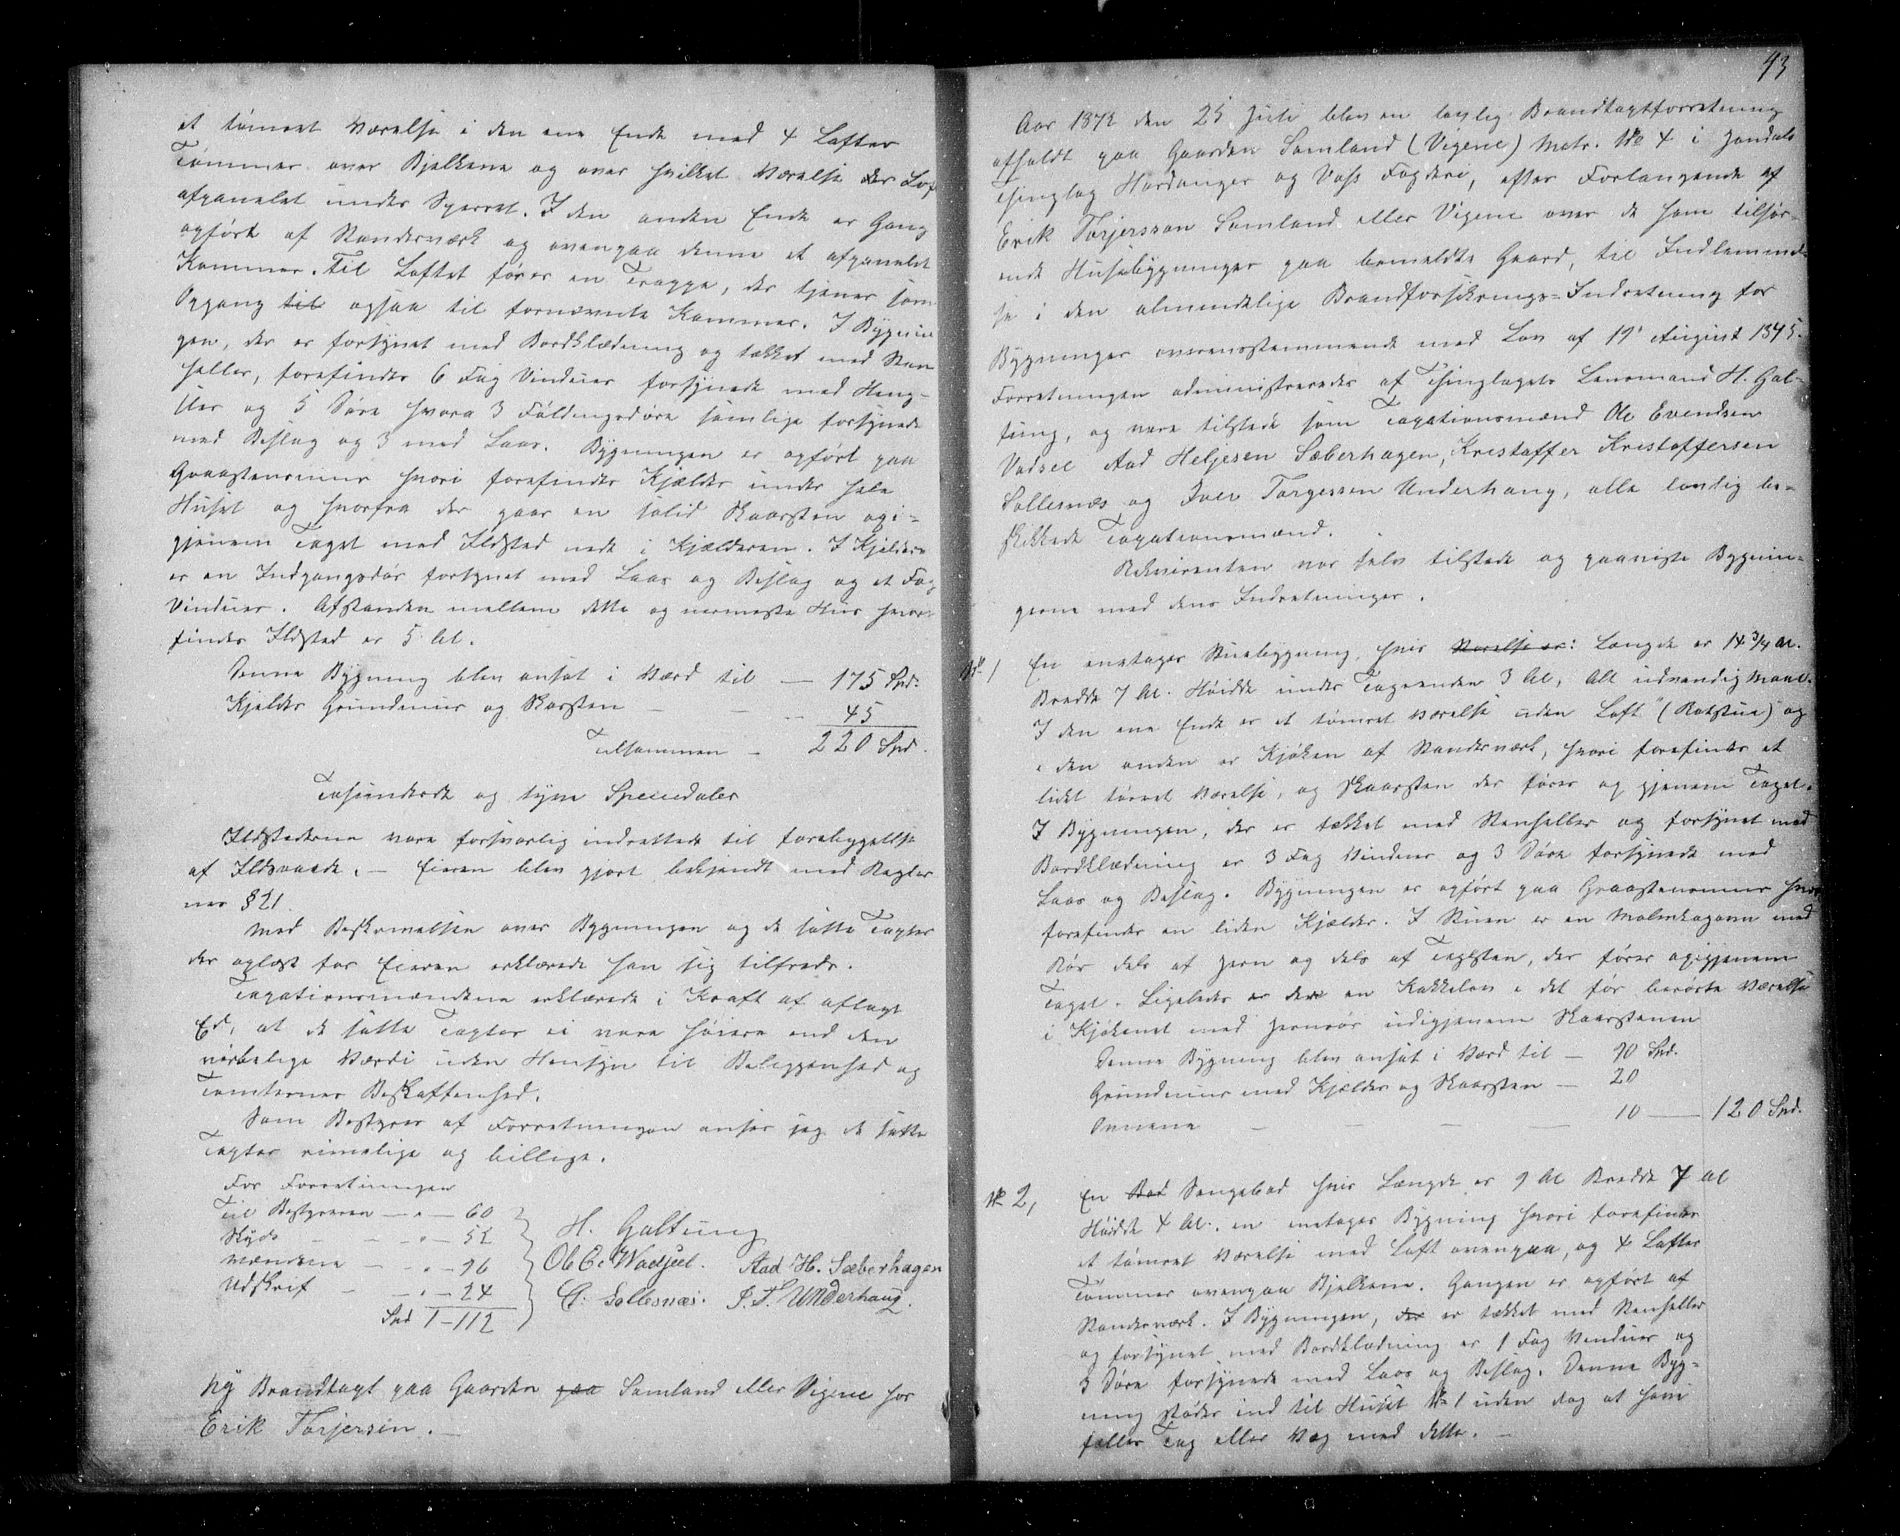 et tømret Værelse i den ene Ende med 4 Lofter
Tømmer over Bjelkerne og over hvilket Værelse der Lof
afpanelet under Sperret. I den anden Ende er Gang
opført af Standerværk og ovenpaa denne et afpanelet
Kammer. Til Loftet fører en Trappe, der tjener som
Opgang til ogsaa til fornævnte Kammer. I Bygnin
gen, der er forsynet med Bordklædning og tækket med Sten
heller, forefindes 6 Fag Vinduer forsynede med Heng-
sler og 5 Døre hvoraf 3 Fyldingsdøre samtlige forsynede
med Beslag og 3 med Laas. Bygningen er opført paa
Graastensmuur hvori forefindes Kjelder under hele
Huset og hvorfra der gaar en solid Skaarsten opi-
gjennem Taget med Ildsted nede i Kjælderen. I Kjelder
er en Indgangsdør forsynet med Laas og Beslag og et Fag
Vinduer. Afstanden mellem dette og nærmeste Hus hvor
findes Ildsted er 5 Al.
Denne Bygning blev ansat i Værd til — 175 Spd.
Kjelder Grundmuur og Skorsten — — — 45
Tilsammen — 220 Spd.
Tohundrede og tyve Speciedaler
Ildstederne vare forsvarlig indrettede til forebyggelse
af Ildsvaade. — Eieren blev gjort bekjendt med Regler
nes § 21
Med Beskrivelsen over Bygningen og de satte Taxter
der oplæst for Eieren erklærede han sig tilfreds.
Taxationsmændene erklærede i Kraft af aflagt
Ed, at de satte Taxter ei vare høiere end den
virkelige Værdi uden Hensyn til Beliggenhed og
Tomternes Beskaffenhed.
Som Bestyrer af Forretningen anser jeg de satte
Taxter rimelige og billige.
For Forretningen
Til Bestyreren — " — 60
Skyds — — " — 52
Mændene — — " — 96
Udskrift — — " — 24
Spd 1 — 112
H. Galtung
Ol E. Wadseel. Aad H. Sæberhagen
C. Sollesnæs. I. T. Underhaug.
Ny Brandtaxt paa Gaarden paa Samland eller Vigene for
Erik Torjersen. —
93
Aar 1872 den 25 Juli blev en lovlig Brandtaxtforretning
afholdt paa Gaarden Samland (Vigene) Matr. No 4 i Jondals
Thinglag Hardanger og Voss Fogderi, efter Forlangende af
Erik Torjersson Samland eller Vigene over de ham tilhør-
ende Husebygninger paa bemeldte Gaard, til Indlemmel-
se i den almindelige Brandforsikrings-Indretning for
Bygninger overensstemmende med Lov af 19' August 1845.
Forretningen administreredes af Thinglagets Lensmand H. Gal-
tung, og vare tilstede som Taxationsmænd Ole Evendsen
Vadsel Aad Heljesen Sæberhagen, Kristaffer Kristaffersen
Sollesnæs og Iver Torgersen Underhaug, alle lovlig be-
skikkede Taxationsmænd.
Rekvirenten var selv tilstede og paaviste Bygnin-
gerne med dens Indretninger.
No 1 En enetages Stuebygning, hvis Størrelse er: Længde er 14 3/4 Al.
Bredde 7 Al. Høidde under Tagrenden 3 Al, Alt udvendig Maal.
I den ene Ende er et tømret Værelse uden Loft (Rokstue) og
i den anden er Kjøken af Standerværk, hvori forefindes et
lidet tømret Værelse, og Skaarsten der fører op gjennem Taget.
I Bygningen, der er tækket med Stenheller og forsynet med
Bordklædning er 3 Fag Vinduer og 3 Døre forsynede med
Laas og Beslag. Bygningen er opført paa Graastensmuur hvor
forefindes en liden Kjælder. I Stuen er en Malmkagovn med
Rør dels af Jern og dels af Teglsten, der fører opigjennem
Taget. Ligeledes er der en Kakkelov i det før berørte Værelse
i Kjøkenet med Jernrør udigjennem Skaarstenen
Denne Bygning blev ansat i Værd til — 90 Spd.
Grundmuur med Kjælder og Skaarsten — 20
Ovnene — — — 10 — 120 Spd.
No 2, En Bod Sengebod hvis Længde er 9 Al Bredde 7 Al
Høidde 4 Al., en enetages Bygning hvori forefindes
et tømret Værelse med Loft ovenpaa, og 4 Lofter
Tømmer ovenpaa Bjelkerne. Gangen er opført af
Standerværk. I Bygningen, der er tækket med Stenheller
og forsynet med Bordklædning er 1 Fag Vinduer og
3 Døre forsynede med Laas og Beslag. Denne Byg-
ning støder ind til Huset No 1 uden dog at have
fælles Tag eller Væg med dette. —